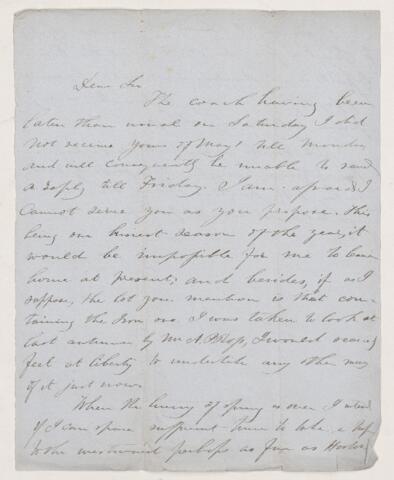 Dear Sir
The coach having been
later than usual on Saturday I did
not receive yours of May 1 till Monday
and will consequently be unable to send
a reply till Friday. I am afraid I
cannot serve you as you propose. This
being our busiest season of the year, it
would be impossible for me to leave
home at present; and besides, if as I
suppose, the lot you mention is that con-
taining the Iron ore I was taken to look at
last autumn by Mr A. P. I would scarcely
feel at liberty to undertake any other survey
of it just now.
When the hurry of spring is over I intend
if I can spare sufficient time to take a trip
to the westward perhaps as far as